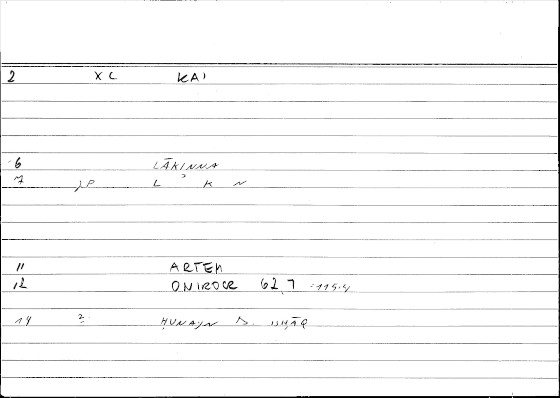 2 XC KAI
6 LĀKINNA
7 JP L ʾ K N
11 ARTEM
12 ONIROCR 62,7 = 115.4
14 2 ḤUNAYN B. ISḤĀQ